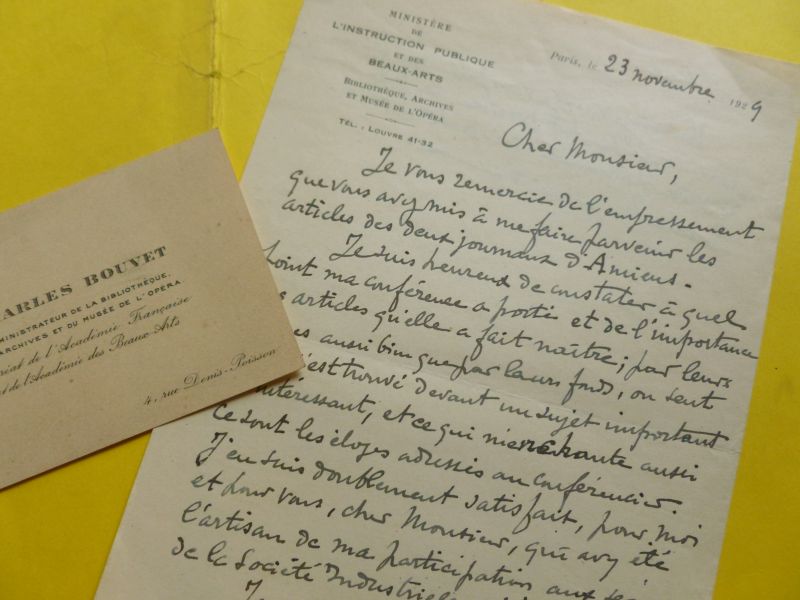 MINISTÈRE
DE
L'INSTRUCTION PUBLIQUE
ET DES
BEAUX-ARTS
BIBLIOTHÈQUE, ARCHIVES
ET MUSÉE DE L'OPÉRA
TÉL. : LOUVRE 41-32
Paris, le 23 novembre 1929
Cher Monsieur,
Je vous remercie de l'empressement
que vous avez mis à me faire parvenir les
articles des deux journaux d'Amiens.
Je suis heureux de constater à quel
point ma conférence a porté et de l'importance
articles qu'elle a fait naître ; par leurs
aussi bien que par leurs fonds, on sent
est trouvé devant un sujet important
intéressant, et ce qui m'enchante aussi
ce sont les éloges adressés au conférencier.
J'en suis doublement satisfait, pour moi
et pour vous, cher Monsieur, qui avez été
l'artisan de ma participation aux
de la Société Industrielle
ARLES BOUVET
MINISTRATEUR DE LA BIBLIOTHÈQUE,
ARCHIVES ET DU MUSÉE DE L'OPÉRA
réat de l'Académie Française
t de l'Académie des Beaux-Arts
4, rue Denis-Poisson